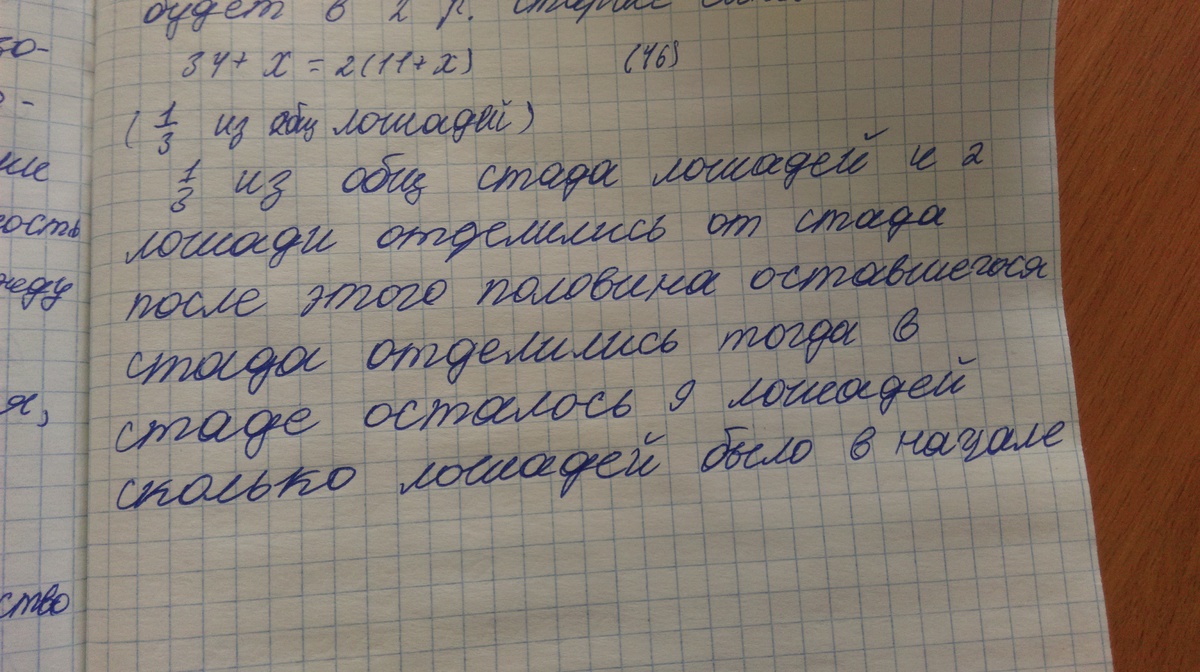 будет в 2 р.
34 + х = 2(11+х) (46)
(1/3 из общ лошадей)
1/3 из общ стада лошадей и 2
лошади отделились от стада
после этого половина оставшегося
стада отделились тогда в
стаде осталось 9 лошадей
сколько лошадей было в начале
я,
ство